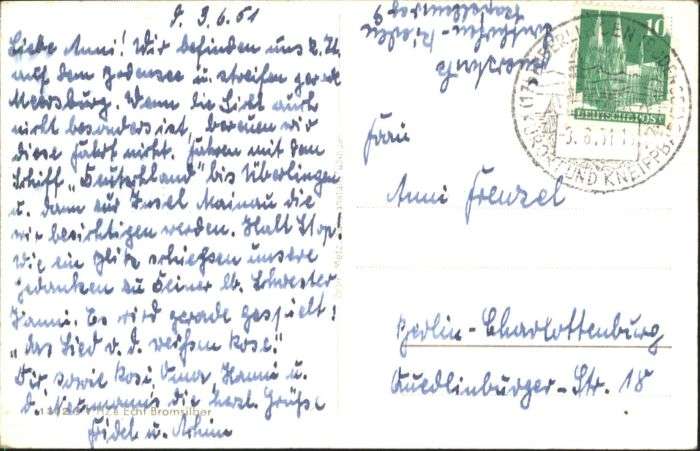 d. 3.6.51
Liebe Anni! Wir befinden uns z. Zt.
auf dem Bodensee u. streifen gerade
Meersburg. Wenn die Sicht auch
nicht besonders ist, bereuen wir
diese Fahrt nicht. Fahren mit dem
Schiff „Deutschland" bis Überlingen
u. dann zur Insel Mainau die
wir besichtigen werden. Halt Stop!
Wie ein Blitz schiessen unsere
Gedanken zu Deiner lb. Schwester
Hanni. Es wird gerade gespielt:
„Das Lied v. d. weissen Rose."
Dir sowie Rosi, Oma, Hanni u.
d. Naumanns die herzl. Grüße
Fidel u. Achim
Echt Bromsilber
10
DEUTSCHE POST
3.6.51
KURORT UND KNEIPPBAD
Frau
Anni Frenzel
Berlin-Charlottenburg
Quedlinburger-Str. 18